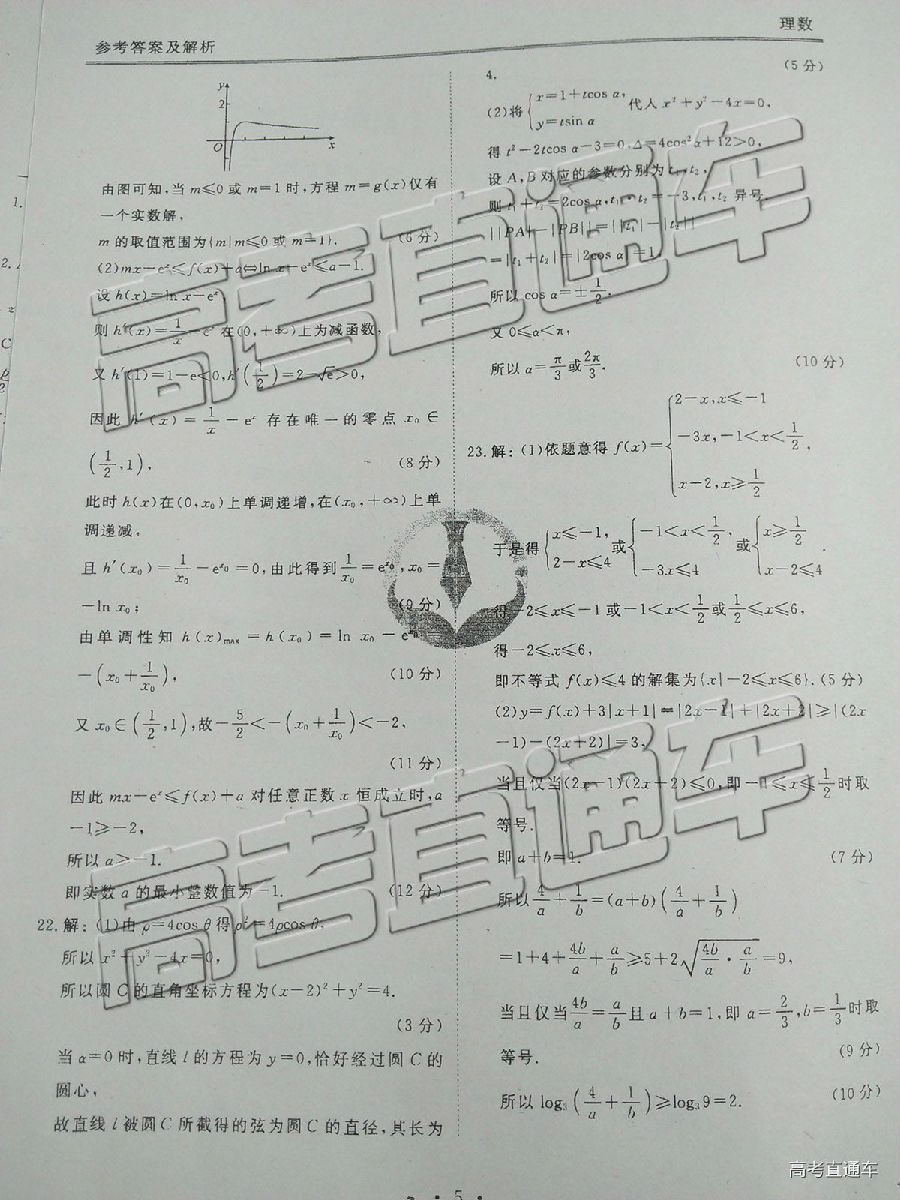 参考答案及解析
理数
y
2
O
x
由图可知,当 m≤0 或 m=1 时,方程 m=g(x)仅有
一个实数解,
m 的取值范围为{m|m≤0 或 m=1}. (6分)
(2)mx-eˣ≤f(x)+a⇔ln x-eˣ≤a-1.
设 h(x)=ln x-eˣ
则 h′(x)=1/x-eˣ 在(0,+∞)上为减函数,
又 h′(1)=1-e<0,h′(1/2)=2-√e>0,
因此 h′(x)=1/x-eˣ 存在唯一的零点 x₀∈
(1/2,1), (8分)
此时 h(x)在(0,x₀)上单调递增,在(x₀,+∞)上单
调递减.
且 h′(x₀)=1/x₀-e^{x₀}=0,由此得到 1/x₀=e^{x₀},x₀=
-ln x₀; (9分)
由单调性知 h(x)max=h(x₀)=ln x₀-e^{x₀}
-(x₀+1/x₀), (10分)
又 x₀∈(1/2,1),故-5/2<-(x₀+1/x₀)<-2,
(11分)
因此 mx-eˣ≤f(x)+a 对任意正数 x 恒成立时,a
-1≥-2,
所以 a≥-1.
即实数 a 的最小整数值为-1. (12分)
22.解:(1)由 ρ=4cos θ 得 ρ²=4ρcos θ,
所以 x²+y²-4x=0,
所以圆 C 的直角坐标方程为(x-2)²+y²=4.
(3分)
当 α=0 时,直线 l 的方程为 y=0,恰好经过圆 C 的
圆心,
故直线 l 被圆 C 所截得的弦为圆 C 的直径,其长为
4. (5分)
(2)将{x=1+tcos α, y=tsin α 代入 x²+y²-4x=0,
得 t²-2tcos α-3=0,Δ=4cos²α+12>0,
设 A,B 对应的参数分别为 t₁,t₂,
则 t₁+t₂=2cos α,t₁·t₂=-3,t₁,t₂ 异号,
||PA|-|PB||=||t₁|-|t₂||
=|t₁+t₂|=|2cos α|=1,
所以 cos α=±1/2,
又 0≤α<π,
所以 α=π/3 或 2π/3. (10分)
23.解:(1)依题意得 f(x)={2-x,x≤-1 -3x,-1<x<1/2, x-2,x≥1/2
于是得{x≤-1, 2-x≤4 或{-1<x<1/2, -3x≤4 或{x≥1/2 x-2≤4
得-2≤x≤-1 或-1<x<1/2 或 1/2≤x≤6,
得-2≤x≤6,
即不等式 f(x)≤4 的解集为{x|-2≤x≤6}.(5分)
(2)y=f(x)+3|x+1|=|2x-1|+|2x+2|≥|(2x
-1)-(2x+2)|=3,
当且仅当(2x-1)(2x+2)≤0,即-1≤x≤1/2 时取
等号.
即 a+b=1. (7分)
所以 4/a+1/b=(a+b)(4/a+1/b)
=1+4+4b/a+a/b≥5+2√(4b/a·a/b)=9,
当且仅当 4b/a=a/b 且 a+b=1,即 a=2/3,b=1/3 时取
等号. (9分)
所以 log₃(4/a+1/b)≥log₃9=2. (10分)
· 5 ·
高考直通车
高考直通车
高考直通车